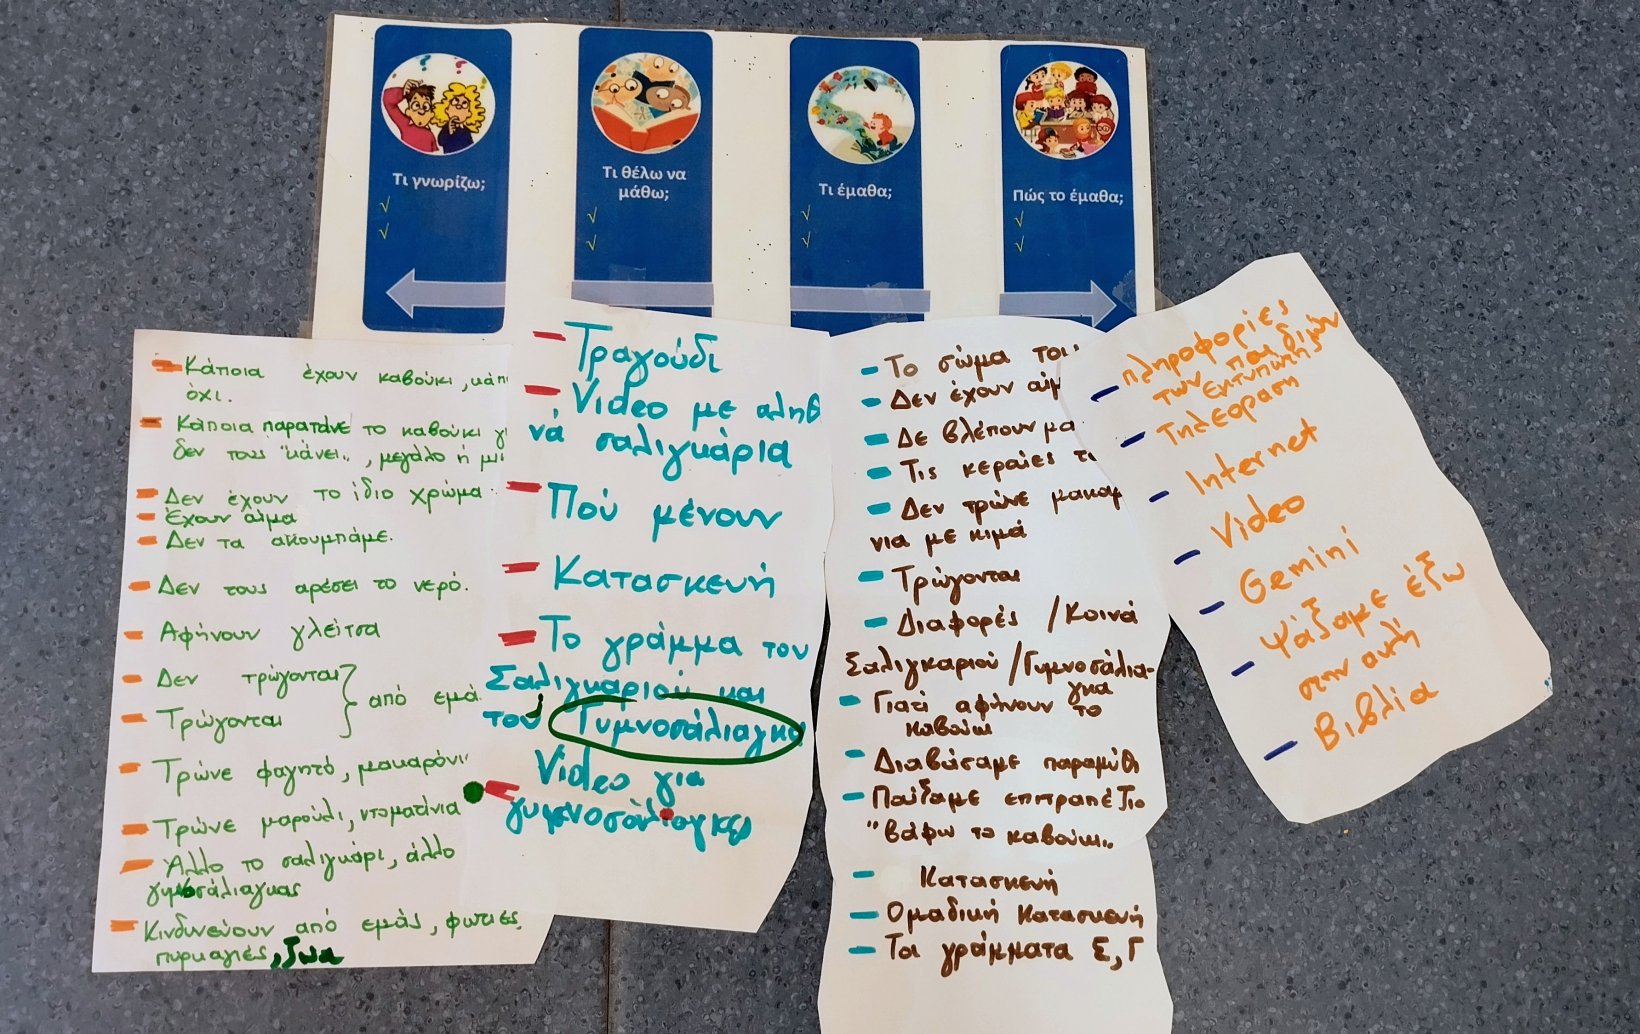 Τι γνωρίζω;
√
√
Τι θέλω να
μάθω;
√
√
Τι έμαθα;
√
√
Πώς το έμαθα;
√
√
- Κάποια έχουν καβούκι, κάπ
όχι.
- Κάποια παρατάνε το καβούκι γ
δεν τους "κάνει", μεγάλο ή μι
- Δεν έχουν το ίδιο χρώμα
- Έχουν αίμα
- Δεν τα ακουμπάμε.
- Δεν τους αρέσει το νερό.
- Αφήνουν γλείτσα
- Δεν τρώγονται
- Τρώγονται } από εμά
- Τρώνε φαγητό, μακαρόνι
- Τρώνε μαρούλι, ντοματίνια
- Άλλο το σαλιγκάρι, άλλο
γυμνοσάλιαγκας
- Κινδυνεύουν από εμάς, φωτιές,
πυρκαγιές, ζώα
- Τραγούδι
- Video με αληθ
νά σαλιγκάρια
- Πού μένουν
- Κατασκευή
- Το γράμμα του
Σαλιγκαριού και
του Γυμνοσάλιαγκα
- Video για
γυμνοσάλιαγκες
- Το σώμα του
- Δεν έχουν αίμ
- Δε βλέπουν μα
- Τις κεραίες τ
- Δεν τρώνε μακαρ
νια με κιμά
- Τρώγονται
- Διαφορές / Κοινά
Σαλιγκαριού / Γυμνοσάλια-
γκα
- Γιατί αφήνουν το
καβούκι
- Διαβάσαμε παραμύθι
- Παίξαμε επιτραπέζιο
"Βάφω το καβούκι"
- Κατασκευή
- Ομαδική Κατασκευή
- Τα γράμματα Σ, Γ
- Πληροφορίες
των παιδιών
εντυπώσεις
- Τηλεόραση
- Internet
- Video
- Gemini
- Ψάξαμε έξω
στην αυλή
- Βιβλία